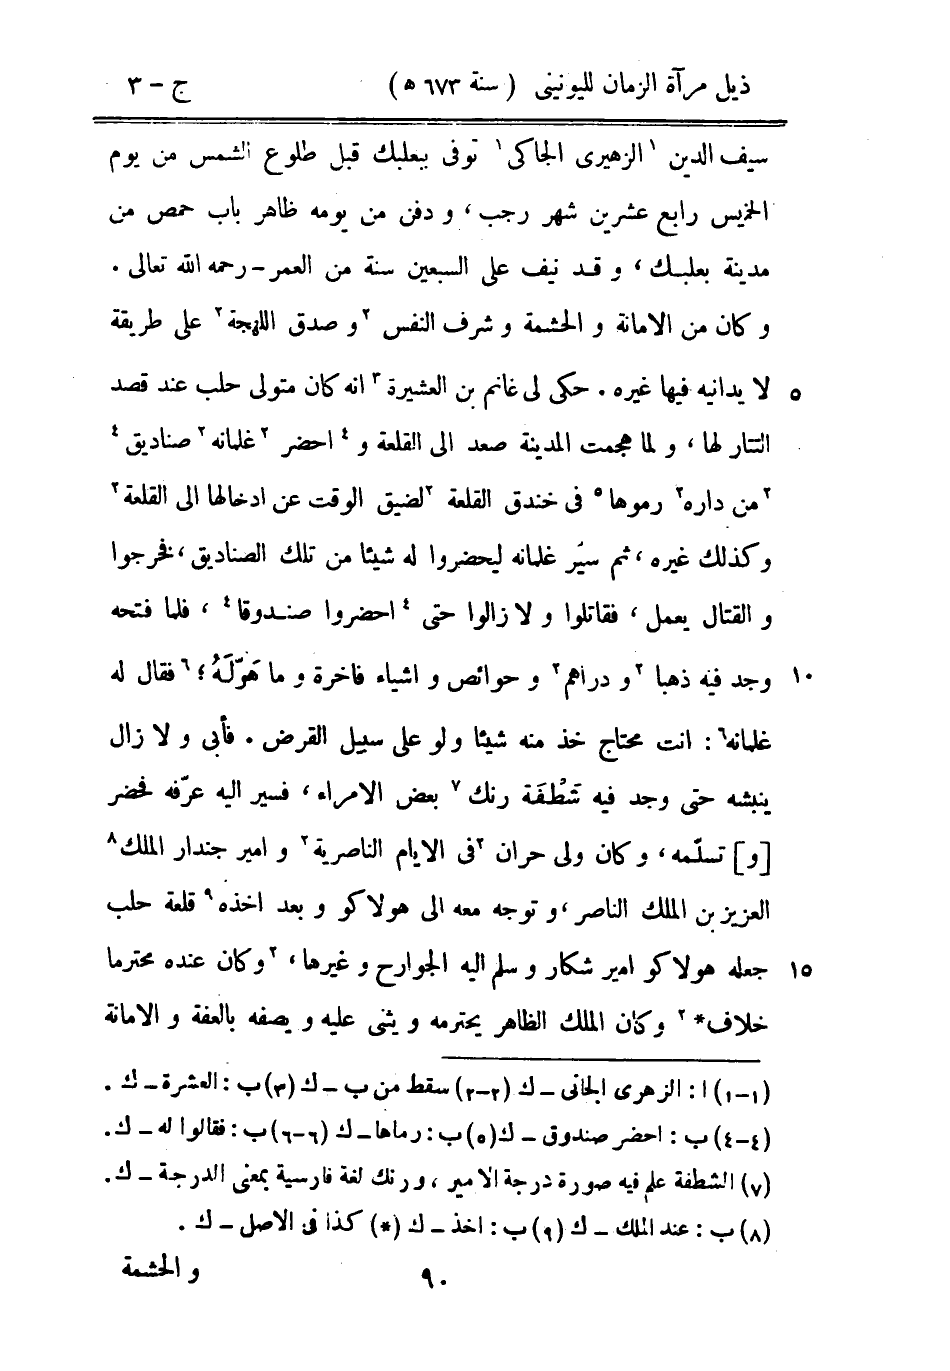 ذيل مرآة الزمان لليونينى (سنة ٦٧٣ ه) ج - ٣
سيف الدين ١الزهيرى الجاكى١ توفى ببعلبك قبل طلوع الشمس من يوم
الخميس رابع عشرين شهر رجب، و دفن من يومه ظاهر باب حمص من
مدينة بعلبك، و قد نيف على السبعين سنة من العمر - رحمه الله تعالى .
و كان من الامانة و الحشمة و شرف النفس ٢و صدق اللهجة٢ على طريقة
٥ لا يدانيه فيها غيره . حكى لى غانم بن العشيرة٣ انه كان متولى حلب عند قصد
التتار لها، و لما هجمت المدينة صعد الى القلعة و ٤احضر ٢غلمانه٢ صناديق٤
٢من داره٢ رموها٥ فى خندق القلعة ٢لضيق الوقت عن ادخالها الى القلعة٢
وكذلك غيره، ثم سيّر غلمانه ليحضروا له شيئا من تلك الصناديق، فخرجوا
و القتال يعمل، فقاتلوا و لا زالوا حتى ٤احضروا صندوقا٤، فلما فتحه
١٠ وجد فيه ذهبا ٢و دراهم٢ و حوائص و اشياء فاخرة و ما هَوّلَهُ؛ ٦فقال له
غلمانه٦: انت محتاج خذ منه شيئا ولو على سبيل القرض . فأبى و لا زال
ينبشه حتى وجد فيه شَطْفَة رنك٧ بعض الامراء، فسير اليه عرّفه فحضر
[و] تسلّمه، و كان ولى حران ٢فى الايام الناصرية٢ و امير جندار الملك٨
العزيز بن الملك الناصر، و توجه معه الى هولاكو و بعد اخذه٩ قلعة حلب
١٥ جعله هولاكو امير شكار و سلم اليه الجوارح و غيرها، ٢وكان عنده محترما
خلاف*٢ وكان الملك الظاهر يحترمه و يثنى عليه و يصفه بالعفة و الامانة
(١-١) ا: الزهرى الجانى - ك (٢-٢) سقط من ب - ك (٣) ب: العشرة - ك .
(٤-٤) ب: احضر صندوق - ك (٥) ب: رماها - ك (٦-٦) ب: فقالوا له - ك.
(٧) الشطفة علم فيه صورة درجة الامير، و رنك لغة فارسية بمعنى الدرجة - ك.
(٨) ب: عند الملك - ك (٩) ب: اخذ - ك (*) كذا فى الاصل - ك .
٩٠ و الحشمة